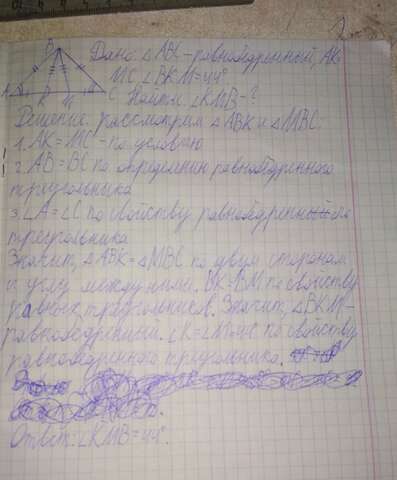 B
A K M C
Дано: △ABC - равнобедренный, AK=
MC ∠BKM=44°
Найти ∠KMB - ?
Решение: рассмотрим △ABK и △MBC.
1. AK=MC - по условию
2. AB=BC по определению равнобедренного
треугольника
3. ∠A=∠C по свойству равнобедренного
треугольника
Значит, △ABK=△MBC по двум сторонам
и углу между ними. BK=BM по свойству
равных треугольников. Значит, △BKM-
равнобедренный. ∠K=∠M=44° по свойству
равнобедренного треугольника.
Ответ: ∠KMB=44°.